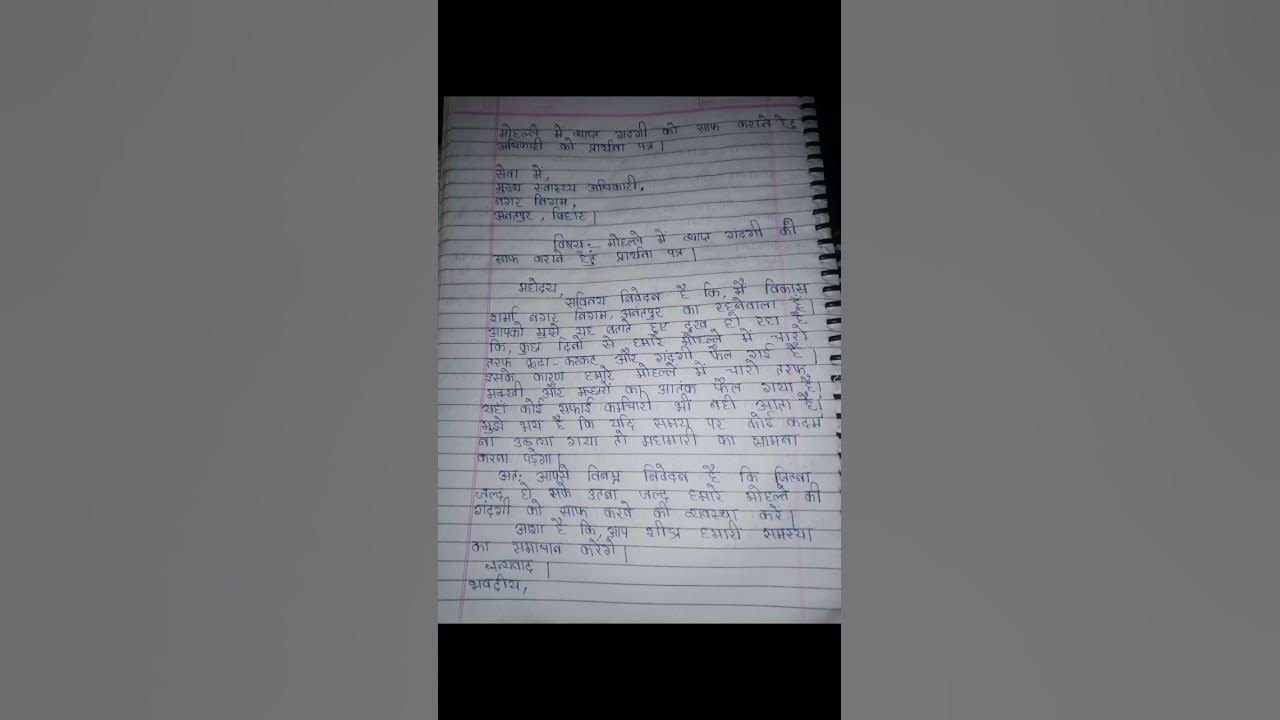 मोहल्ले में व्याप्त गंदगी को साफ कराने हेतु
अधिकारी को प्रार्थना पत्र।
सेवा में,
मुख्य स्वास्थ्य अधिकारी,
नगर निगम,
अनंतपुर, बिहार।
विषय:- मोहल्ले में व्याप्त गंदगी की
साफ कराने हेतु प्रार्थना पत्र।
महोदय,
सविनय निवेदन है कि, मैं विकास
शर्मा नगर निगम, अनंतपुर का रहनेवाला हूँ।
आपको मुझे यह बताते हुए दुख हो रहा है
कि, कुछ दिनों से हमारे मोहल्ले में चारो
तरफ कूड़ा-करकट और गंदगी फैल गई है।
इसके कारण हमारे मोहल्ले में चारो तरफ
मक्खी और मच्छरों का आतंक फैल गया है।
यहाँ कोई सफाई कर्मचारी भी नही आता है।
मुझे भय है कि यदि समय पर कोई कदम
ना उठाया गया तो महामारी का सामना
करना पड़ेगा।
अत: आपसे विनम्र निवेदन है कि जितना
जल्द हो सके उतना जल्द हमारे मोहल्ले की
गंदगी को साफ करने की व्यवस्था करें।
आशा है कि, आप शीघ्र हमारी समस्या
का समाधान करेंगे।
धन्यवाद।
भवदीय,